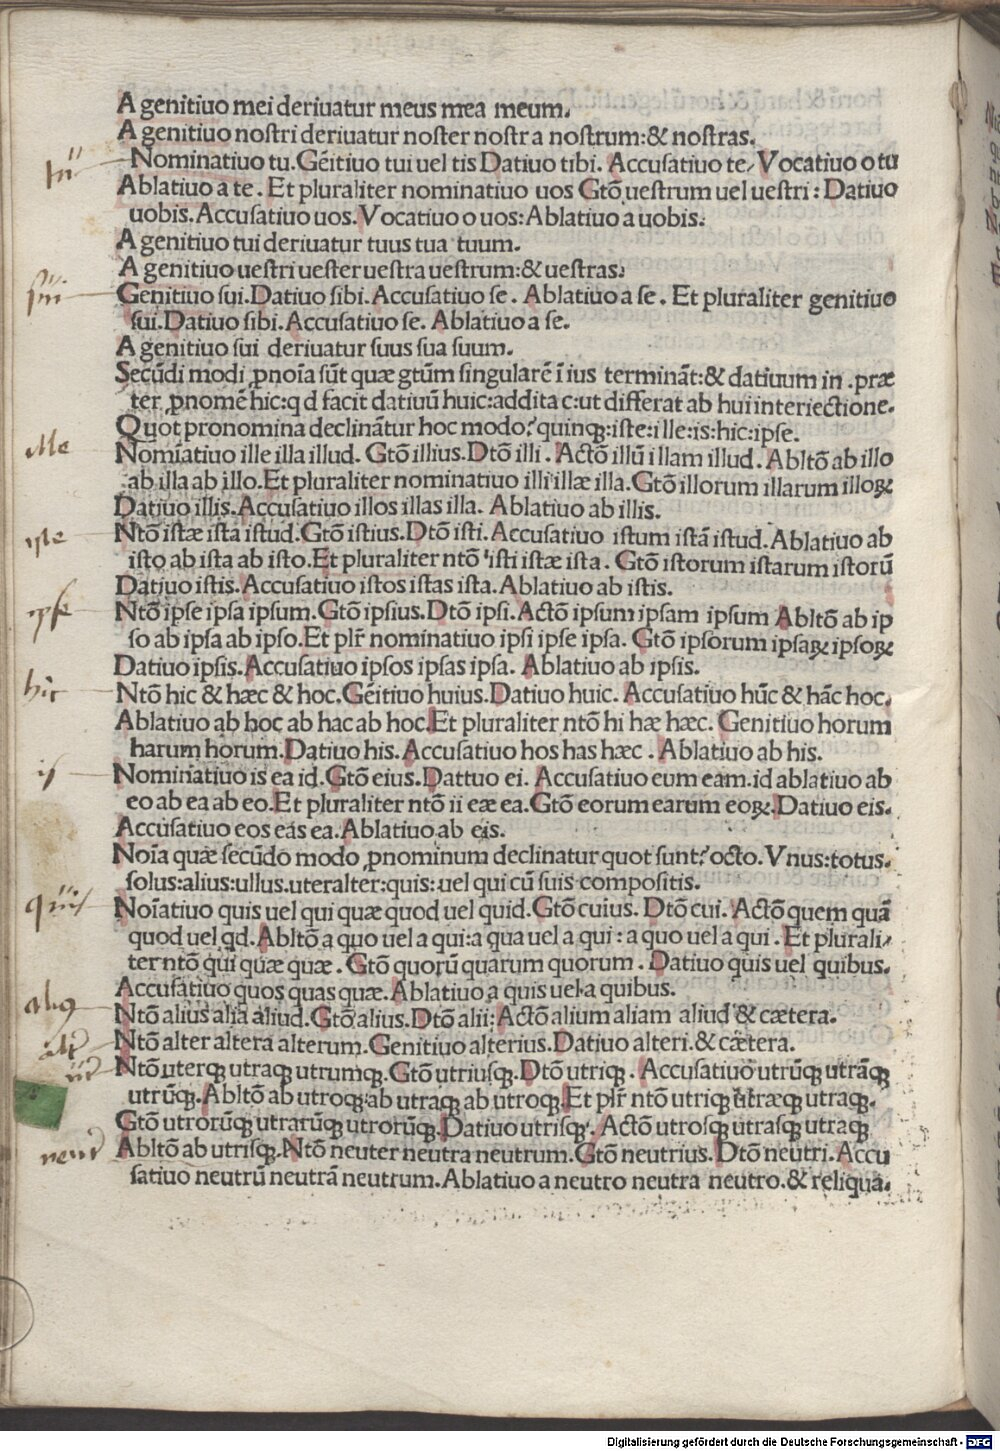 A genitiuo mei deriuatur meus mea meum.
A genitiuo nostri deriuatur noster nostra nostrum:& nostras.
tu
Nominatiuo tu. Gēitiuo tui uel tis Datiuo tibi. Accusatiuo te/ Vocatiuo o tu
Ablatiuo a te. Et pluraliter nominatiuo uos Gtō uestrum uel uestri: Datiuo
uobis. Accusatiuo uos. Vocatiuo o uos: Ablatiuo a uobis.
A genitiuo tui deriuatur tuus tua tuum.
A genitiuo uestri uester uestra uestrum:& uestras:
sui
Genitiuo sui. Datiuo sibi. Accusatiuo se. Ablatiuo a se. Et pluraliter genitiuo
sui. Datiuo sibi. Accusatiuo se. Ablatiuo a se.
A genitiuo sui deriuatur suus sua suum.
Secūdi modi ꝓnoīa sūt quæ gtūm singularē ī ius termināt:& datiuum in .præ
ter ꝓnomē hic:qd facit datiuū huic:addita c:ut differat ab hui interiectione.
Quot pronomina declinātur hoc modo? quinqꝫ:iste:ille:is:hic:ipse.
ille
Nomīatiuo ille illa illud. Gtō illius. Dtō illi. Actō illū illam illud. Abltō ab illo
ab illa ab illo. Et pluraliter nominatiuo illi illæ illa. Gtō illorum illarum illoꝝ
Datiuo illis. Accusatiuo illos illas illa. Ablatiuo ab illis.
iste
Ntō istæ ista istud. Gtō istius. Dtō isti. Accusatiuo istum istā istud. Ablatiuo ab
isto ab ista ab isto. Et pluraliter ntō isti istæ ista. Gtō istorum istarum istorū
Datiuo istis. Accusatiuo istos istas ista. Ablatiuo ab istis.
ipse
Ntō ipse ipsa ipsum. Gtō ipsius. Dtō ipsi. Actō ipsum ipsam ipsum Abltō ab ip
so ab ipsa ab ipso. Et plr̄ nominatiuo ipsi ipse ipsa. Gtō ipsorum ipsaꝝ ipsoꝝ
Datiuo ipsis. Accusatiuo ipsos ipsas ipsa. Ablatiuo ab ipsis.
hic
Ntō hic & hæc & hoc. Gēitiuo huius. Datiuo huic. Accusatiuo hūc & hāc hoc.
Ablatiuo ab hoc ab hac ab hoc. Et pluraliter ntō hi hæ hæc. Genitiuo horum
harum horum. Datiuo his. Accusatiuo hos has hæc. Ablatiuo ab his.
is
Nominatiuo is ea id. Gtō eius. Dattuo ei. Accusatiuo eum eam.id ablatiuo ab
eo ab ea ab eo. Et pluraliter ntō ii eæ ea. Gtō eorum earum eoꝝ. Datiuo eis.
Accusatiuo eos eas ea. Ablatiuo ab eis.
Noīa quæ secūdo modo ꝓnominum declinatur quot sunt? octo. Vnus:totus.
solus:alius:ullus.uteralter:quis:uel qui cū suis compositis.
quis
Noīatiuo quis uel qui quæ quod uel quid. Gtō cuius. Dtō cui. Actō quem quā
quod uel qd. Abltō a quo uel a qui:a qua uel a qui: a quo uel a qui. Et plurali/
ter ntō qui quæ quæ. Gtō quorū quarum quorum. Datiuo quis uel quibus.
Accusatiuo quos quas quæ. Ablatiuo a quis uel a quibus.
Ntō alius alia aliud. Gtō alius. Dtō alii: Actō alium aliam aliud & cætera.
Ntō alter altera alterum. Genitiuo alterius. Datiuo alteri. & cætera.
Ntō uterqꝫ utraqꝫ utrumqꝫ. Gtō utriusqꝫ. Dtō utriqꝫ. Accusatiuo utrūqꝫ utrāqꝫ
utrūqꝫ. Abltō ab utroqꝫ ab utraqꝫ ab utroqꝫ. Et plr̄ ntō utriqꝫ utræqꝫ utraqꝫ.
Gtō utrorūqꝫ utrarūqꝫ utrorūqꝫ. Datiuo utrisqꝫ. Actō utrosqꝫ utrasqꝫ utraqꝫ
Abltō ab utrisqꝫ. Ntō neuter neutra neutrum. Gtō neutrius. Dtō neutri. Accu
satiuo neutrū neutrā neutrum. Ablatiuo a neutro neutra neutro. & reliqua.
Digitalisierung gefördert durch die Deutsche Forschungsgemeinschaft - DFG